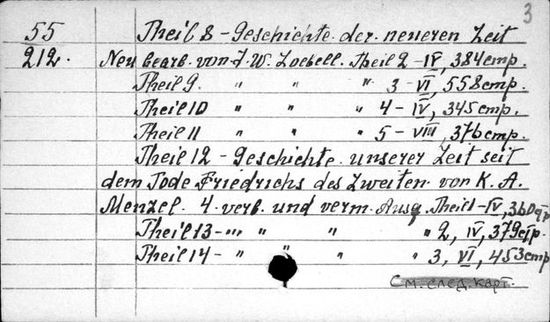 3
55 Theil 8 - Geschichte der neueren Zeit
212. Neu bearb. von J. W. Loebell. Theil 2 - IV, 384 стр.
Theil 9. " " " 3 - VI, 558 стр.
Theil 10 " " " 4 - IV, 345 стр.
Theil 11 " " " 5 - VIII, 376 стр.
Theil 12 - Geschichte unserer Zeit seit
dem Tode Friedrichs des Zweiten von K. A.
Menzel. 4. verb. und verm. Ausg. Theil 1 - IV, 360 стр.
Theil 13 - " " " " 2, IV, 379 стр.
Theil 14 - " " " " 3, VI, 453 стр.
См. след. карт.